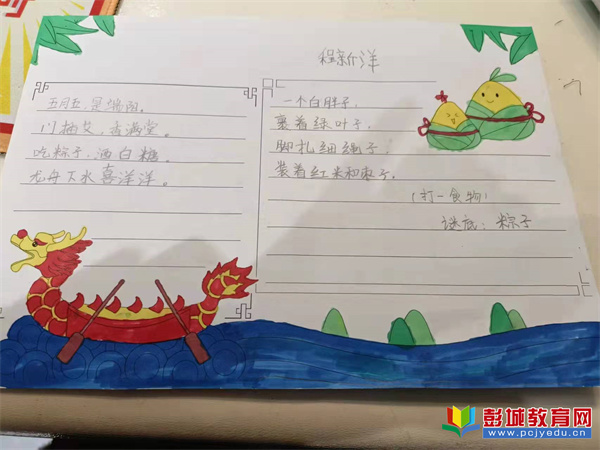 程新洋
五月五,是端阳。
门插艾,香满堂。
吃粽子,洒白糖。
龙舟下水喜洋洋。
一个白胖子,
裹着绿叶子,
脚扎细绳子,
装着红米和枣子。
(打一食物)
谜底:粽子
彭城教育网
www.pcjyedu.cn